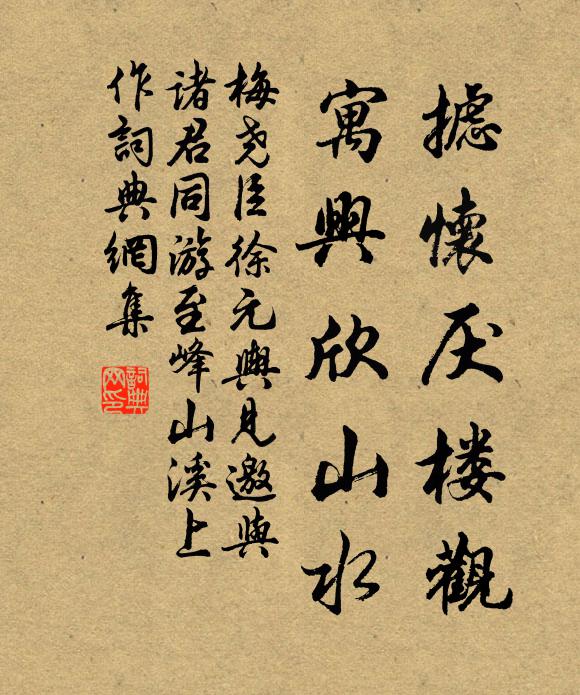 摅懷厌楼觀
寓興欣山水
梅尧臣徐元輿見邀與
諸君同游至峰山溪上
作詞典網集
詞典网印